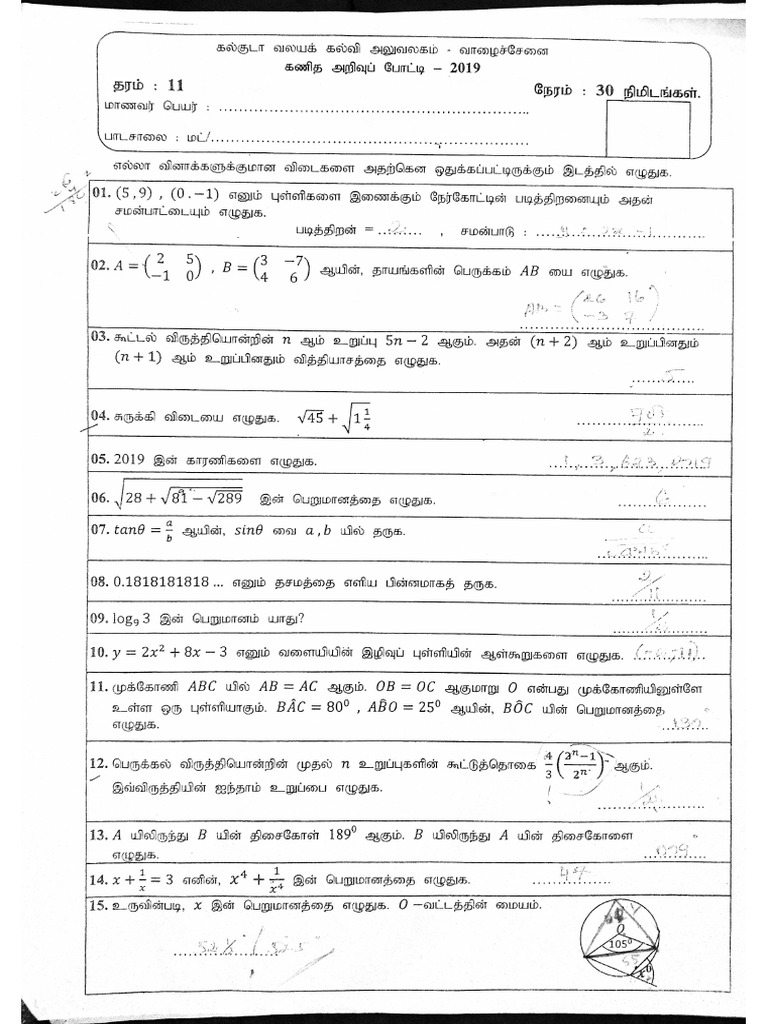 கல்குடா வலயக் கல்வி அலுவலகம் - வாழைச்சேனை
கணித அறிவுப் போட்டி – 2019
தரம் : 11 நேரம் : 30 நிமிடங்கள்.
மாணவர் பெயர் : ........................................................
பாடசாலை : மட்/........................................................
எல்லா வினாக்களுக்குமான விடைகளை அதற்கென ஒதுக்கப்பட்டிருக்கும் இடத்தில் எழுதுக.
01. (5, 9) , (0. −1) எனும் புள்ளிகளை இணைக்கும் நேர்கோட்டின் படித்திறனையும் அதன்
சமன்பாட்டையும் எழுதுக.
படித்திறன் = ...2... , சமன்பாடு : ...y = 2x - 1
02. A = (2 5 / −1 0) , B = (3 −7 / 4 6) ஆயின், தாயங்களின் பெருக்கம் AB யை எழுதுக.
AB = (26 16 / -3 7)
03. கூட்டல் விருத்தியொன்றின் n ஆம் உறுப்பு 5n − 2 ஆகும். அதன் (n + 2) ஆம் உறுப்பினதும்
(n + 1) ஆம் உறுப்பினதும் வித்தியாசத்தை எழுதுக.
5
04. சுருக்கி விடையை எழுதுக. √45 + √1 1/4
05. 2019 இன் காரணிகளை எழுதுக. 1, 3, 673, 2019
06. √28 + √81 − √289 இன் பெறுமானத்தை எழுதுக. 6
07. tanθ = a/b ஆயின், sinθ வை a , b யில் தருக.
08. 0.1818181818 ... எனும் தசமத்தை எளிய பின்னமாகத் தருக. 2/11
09. log₉ 3 இன் பெறுமானம் யாது? 1/2
10. y = 2x² + 8x − 3 எனும் வளையியின் இழிவுப் புள்ளியின் ஆள்கூறுகளை எழுதுக. (-2, -11)
11. முக்கோணி ABC யில் AB = AC ஆகும். OB = OC ஆகுமாறு O என்பது முக்கோணியினுள்ளே
உள்ள ஒரு புள்ளியாகும். BÂC = 80⁰ , AB̂O = 25⁰ ஆயின், BÔC யின் பெறுமானத்தை
எழுதுக. 130°
12. பெருக்கல் விருத்தியொன்றின் முதல் n உறுப்புகளின் கூட்டுத்தொகை 4/3 (3ⁿ−1 / 2ⁿ) ஆகும்.
இவ்விருத்தியின் ஐந்தாம் உறுப்பை எழுதுக.
13. A யிலிருந்து B யின் திசைகோள் 189⁰ ஆகும். B யிலிருந்து A யின் திசைகோளை
எழுதுக. 009°
14. x + 1/x = 3 எனின், x⁴ + 1/x⁴ இன் பெறுமானத்தை எழுதுக. 47
15. உருவின்படி, x இன் பெறுமானத்தை எழுதுக. O −வட்டத்தின் மையம்.
O
105⁰
x⁰